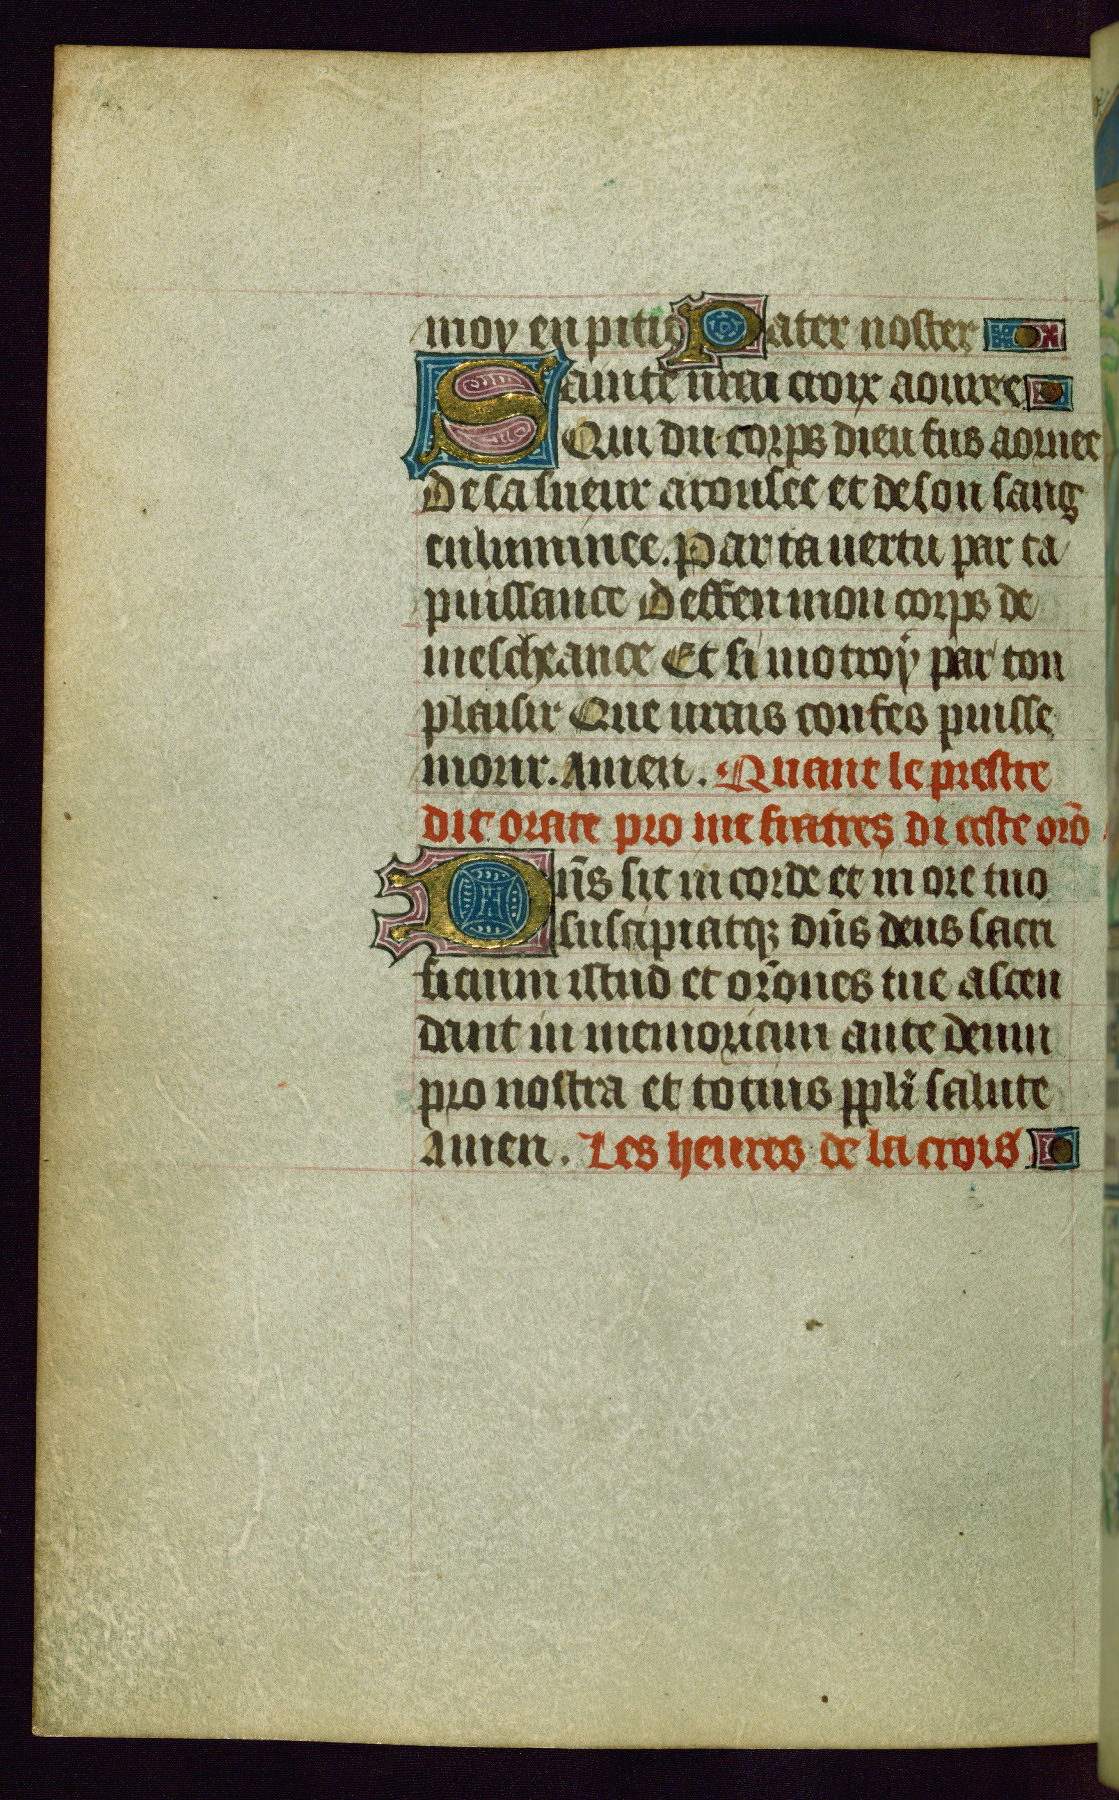 moy en pitie Pater noster
Sainte urai croix aouree
Qui du corps dieu fus aornee
De sa sueur arousee et de son sang
enluminee. Par ta uertu par ta
puissance Deffen mon corps de
mescheance Et si motroy par ton
plaisir Que urais confes puisse
morir. Amen. Quant le prestre
dit orate pro me fratres di ceste orō
Dn̄s sit in corde et in ore tuo
suscipiatqꝫ dn̄s deus sacri
ficium istud et orōnes tue ascen
dant in memoriam ante deum
pro nostra et totius ppl̄i salute
Amen. Les heures de la crois